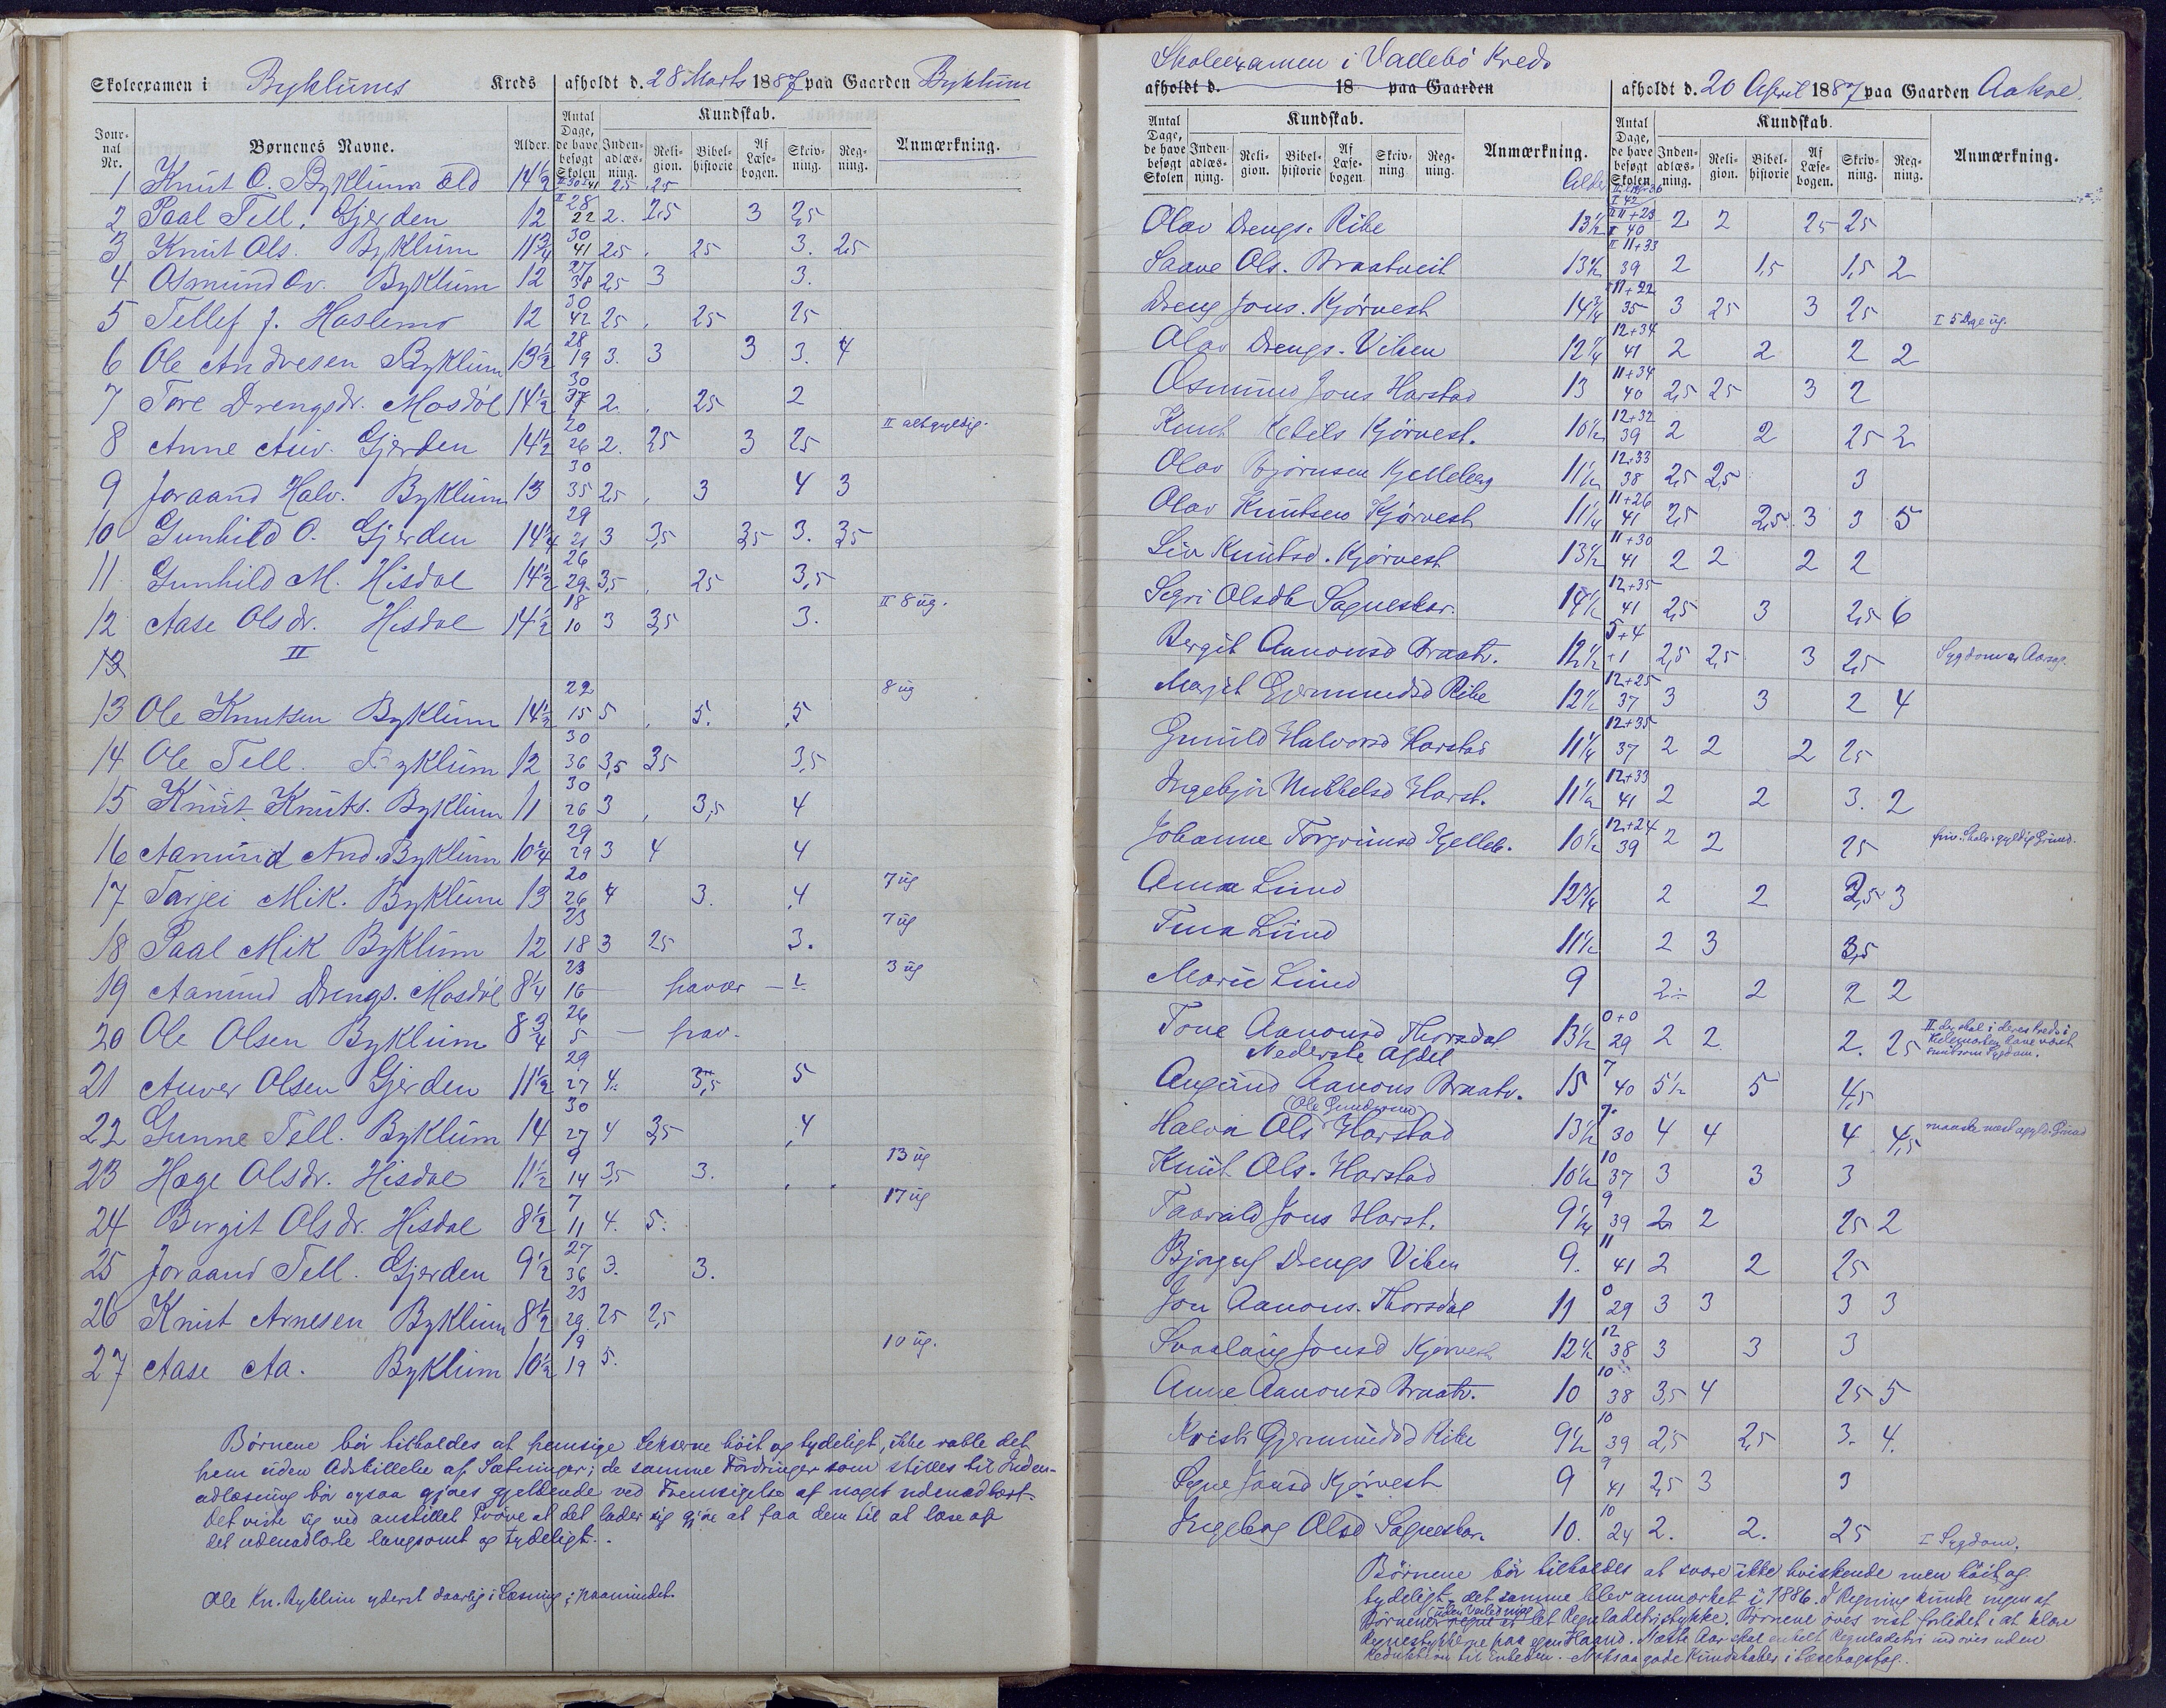 Skoleexamen i Byklums Kreds afholdt d. 28 Marts 1887 paa Gaarden Byklum
Jour-nal Nr. Børnenes Navne. Alder. Antal Dage, de have besøgt Skolen Kundskab. Inden-adlæs-ning. Reli-gion. Bibel-historie Af Læse-bogen. Skriv-ning. Reg-ning. Anmærkning.
1 Knut O. Byklum æld 14½ II 30 I 41 2,5 2,5
2 Paal Tell. Gjerden 12 II 28 22 2. 2,5 3 2,5
3 Knut Ols. Byklum 11¾ 30 41 2,5 25 3. 2,5
4 Osmund Ov. Byklum 12 27 38 2,5 3 3.
5 Tellef J. Haslemo 12 30 42 25 25 25
6 Ole Andresen Byklum 13½ 28 19 3. 3 3 3. 4
7 Tore Drengsdr. Mosdöl 14½ 30 37 2. 25 2
8 Anne Auv. Gjerden 14½ 20 26 2. 2,5 3 25 II alt gyldig.
9 Joraand Halv. Byklum 13 30 35 25 3 4 3
10 Gunhild O. Gjerden 14¼ 29 21 3 3,5 3,5 3. 3,5
11 Gunhild M. Hisdal 14½ 26 29 3,5 25 3,5
12 Aase Olsdr. Hisdal 14½ 18 10 3 3,5 3. II 8 ug.
II
13 Ole Knutsen Byklum 14½ 22 15 5 5. 5 8 ug
14 Ole Tell. Byklum 12 30 36 3,5 35 3,5
15 Knut Knuts. Byklum 11 30 26 3 3,5 4
16 Aamund And. Byklum 10¼ 29 29 3 4 4
17 Tarjei Mik. Byklum 13 20 26 4 3. 4 7 ug
18 Paal Mik Byklum 12 23 18 3 25 3. 7 ug
19 Aamund Drengs. Mosdöl 8¼ 23 16 — 3 ug
20 Ole Olsen Byklum 8¾ 26 5 —
21 Auver Olsen Gjerden 11½ 29 27 4. 3,5 5
22 Gunne Tell. Byklum 14 30 27 4 3,5 4
23 Hæge Olsdr. Hisdal 11½ 9 14 3,5 3. 13 ug
24 Birgit Olsdr. Hisdal 8½ 7 11 4. 5. 17 ug
25 Joraand Tell. Gjerden 9½ 27 36 3. 3.
26 Knut Arnesen Byklum 8½ 23 29 25 2,5
27 Aase Aa. Byklum 10½ 19 19 5. 10 ug.
Børnene bør tilholdes at fremsige Lekserne höit og tydeligt, ikke rable det
frem uden Adskillelse af Sætninger; de samme Fordringer som stilles til Inden-
adlæsning bör ogsaa gjøres gjeldende ved Fremsigelse af noget udenadlært.
Det viste sig ved anstillet Pröve at det lader sig gjöre at faa dem til at læse op
det udenadlærte langsomt og tydeligt.
Ole Kn. Byklum yderst daarlig i Læsning; paamindet.
Skoleexamen i Vallebö Kreds
afholdt d. 18 paa Gaarden afholdt d. 20 April 1887 paa Gaarden Aakre.
Antal Dage, de have besøgt Skolen Kundskab. Inden-adlæs-ning. Reli-gion. Bibel-historie Af Læse-bogen. Skriv-ning Reg-ning. Anmærkning. Alder Antal Dage, de have besøgt Skolen Kundskab. Inden-adlæs-ning. Reli-gion. Bibel-historie Af Læse-bogen. Skriv-ning. Reg-ning. Anmærkning.
Olav Drengs. Rike 13½ II 11+23 I 40 2 2 25 25
Saave Ols. Braatveit 13½ II 11+33 39 2 1,5 1,5 2
Dreng Jons. Kjörvest 14¾ 11+22 35 3 25 3 25 I 5 Dage ug.
Olav Drengs. Viken 12¼ 12+34 41 2 2 2 2
Osmund Jons Harstad 13 11+34 40 2,5 25 3 2
Knut Ketils Kjörvest. 10½ 12+32 39 2 2 25 2
Olav Björnsen Kjelleberg 11½ 12+33 38 2,5 2,5 3
Olav Knutsen Kjörvest 11¼ 11+26 41 2,5 2,5 3 3 5
Liv Knutsd. Kjörvest 13½ 11+30 41 2 2 2 2
Sigri Olsdtr Sagneskar. 14½ 12+35 41 2,5 3 2,5 6
Bergit Aanonsd Braatv. 12½ 5+4 +1 2,5 2,5 3 2,5
Margit Gjermundsd Rike 12½ 12+25 37 3 3 2 4
Gunild Halvorsd Harstad 11¼ 12+35 37 2 2 2 25
Ingebjör Mikkelsd Harst. 11½ 12+33 41 2 2 3. 2
Johanne Torgrimsd Kjelleb. 10½ 12+24 39 2 2 25
Anna Lund 12¾ 2 2 2,5 3
Tina Lund 11½ 2 3 3,5
Marie Lund 9 2 2 2 2
Tone Aanonsd Thorsdal 13½ 0+0 29 2 2 2. 25
Nederste Afdel
Augund Aanons Braatv. 15 7 40 5½ 5 4,5
(Ole Gundersen)
Halvor Ols Harstad 13½ 7 30 4 4 4 4,5
Knut Ols. Harstad 10½ 10 37 3 3 3
Taarald Jons Harst. 9¼ 9 39 2 2 25 2
Bjorgulf Drengs Viken 9. 11 41 2 2 25
Jon Aanons. Thorsdal 11 0 29 3 3 3 3
Svaalaug Jonsd Kjørvest 12½ 12 38 3 3 3
Anne Aanonsd Braatv. 10 10 38 3,5 4 25 5
Kristi Gjermundsd Rike 9½ 10 39 2,5 2,5 3. 4.
Signe Jonsd Kjörvest 9 9 41 2,5 3 3
Ingeborg Olsd Sagneskar. 10. 10 24 2. 2. 25 I Sygdom.
Börnene bör tilholdes at svare ikke hviskende men höit og
tydeligt, det samme blev anmærket i 1886. I Regning kunde ingen af
Börnene uden Veiledning et let Reguladetristykke. Børnene öves vist forlidet i at klare
Regnestykkerne paa egen Haand. Næste Aar skal enkelt Reguladetri indöves uden
Reduktion til Enheden. Noksaa gode Kundskaber i Læsebogsfag.